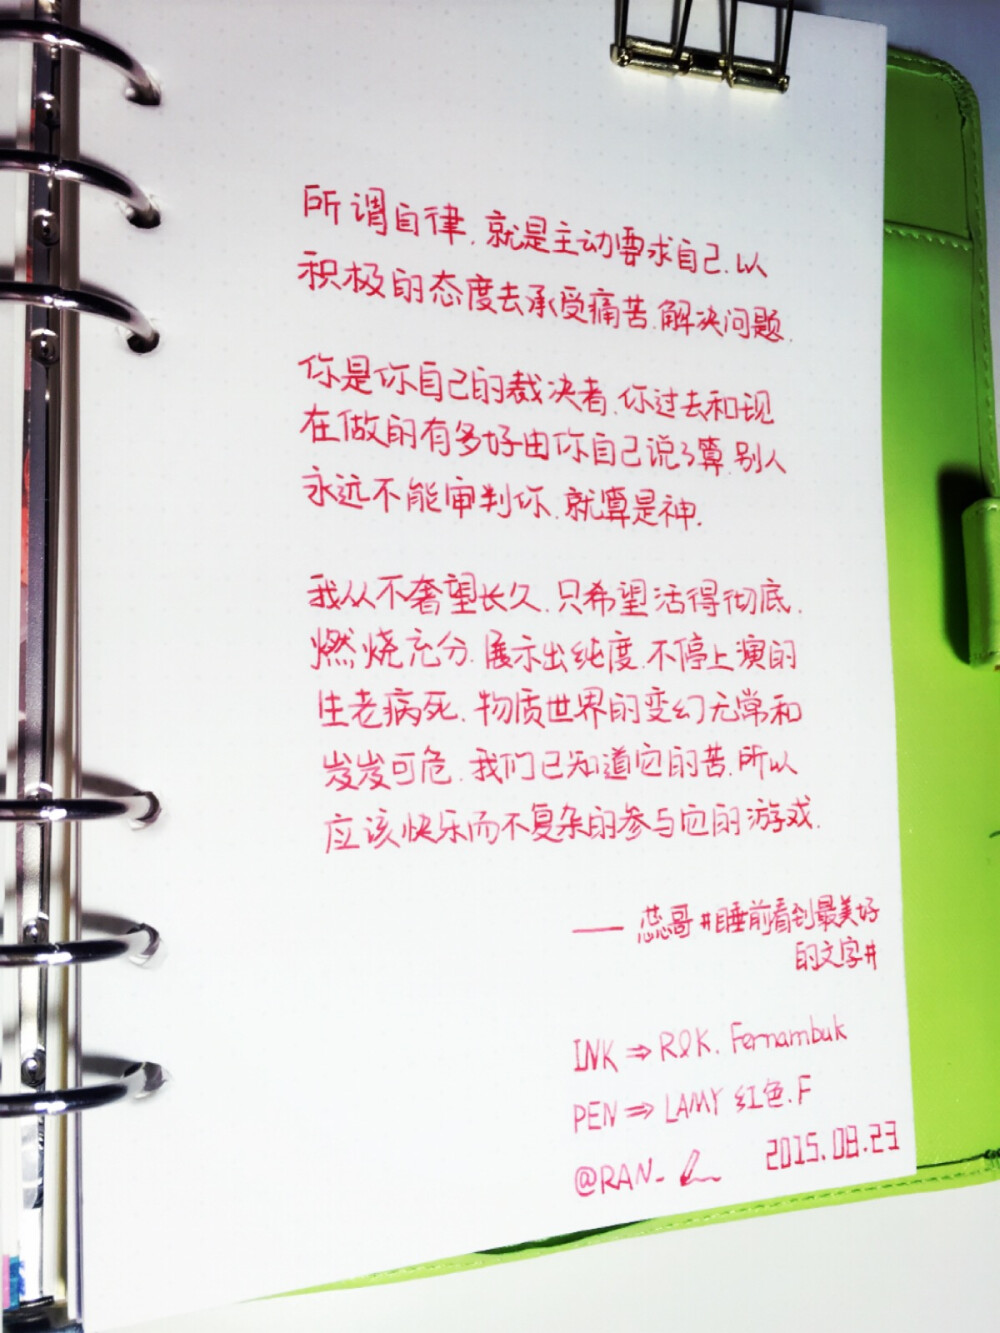 所谓自律.就是主动要求自己.以
积极的态度去承受痛苦.解决问题.
你是你自己的裁决者.你过去和现
在做的有多好由你自己说了算.别人
永远不能审判你.就算是神.
我从不奢望长久.只希望活得彻底.
燃烧充分.展示出纯度.不停上演的
生老病死.物质世界的变幻无常和
岌岌可危.我们已知道它的苦.所以
应该快乐而不复杂的参与它的游戏.
—— 蕊哥 #睡前看到最美好
的文字#
INK ⇒ R&K. Fernambuk
PEN ⇒ LAMY 红色.F
@RAN- 2015.08.23